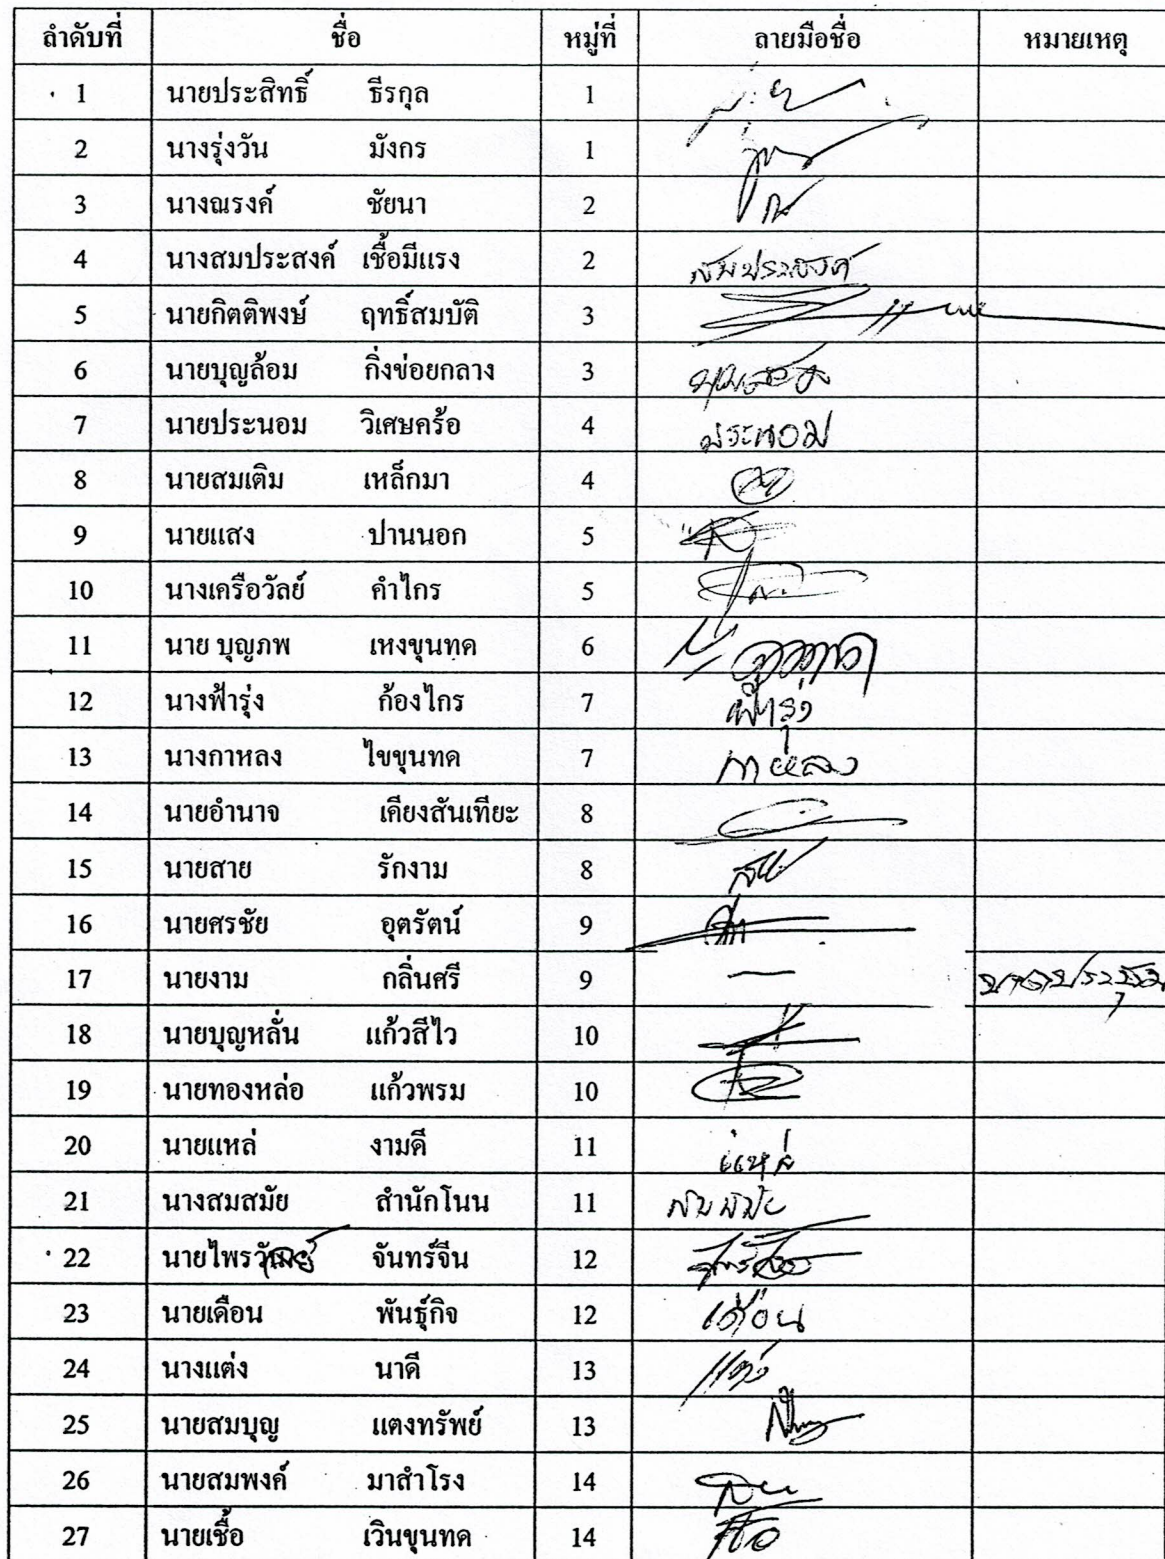 ลำดับที่ ชื่อ หมู่ที่ ลายมือชื่อ หมายเหตุ
1 นายประสิทธิ์ ธีรกุล 1
2 นางรุ่งวัน มังกร 1
3 นางณรงค์ ชัยนา 2
4 นางสมประสงค์ เชื้อมีแรง 2 สมประสงค์
5 นายกิตติพงษ์ ฤทธิ์สมบัติ 3
6 นายบุญล้อม กิ่งข่อยกลาง 3
7 นายประนอม วิเศษคร้อ 4 ประนอม
8 นายสมเติม เหล็กมา 4
9 นายแสง ปานนอก 5
10 นางเครือวัลย์ คำไกร 5
11 นาย บุญภพ เหงขุนทด 6
12 นางฟ้ารุ่ง ก้องไกร 7 ฟ้ารุ่ง
13 นางกาหลง ไขขุนทด 7 กาหลง
14 นายอำนาจ เคียงสันเทียะ 8
15 นายสาย รักงาม 8
16 นายศรชัย อุตรัตน์ 9
17 นายงาม กลิ่นศรี 9 — ขาดประชุม
18 นายบุญหลั่น แก้วสีไว 10
19 นายทองหล่อ แก้วพรม 10
20 นายแหล่ งามดี 11 แหล่
21 นางสมสมัย สำนักโนน 11 สมสมัย
22 นายไพรวัลย์ จันทร์จีน 12
23 นายเดือน พันธุ์กิจ 12 เดือน
24 นางแต่ง นาดี 13 แต่ง
25 นายสมบุญ แตงทรัพย์ 13
26 นายสมพงค์ มาสำโรง 14
27 นายเชื้อ เวินขุนทด 14